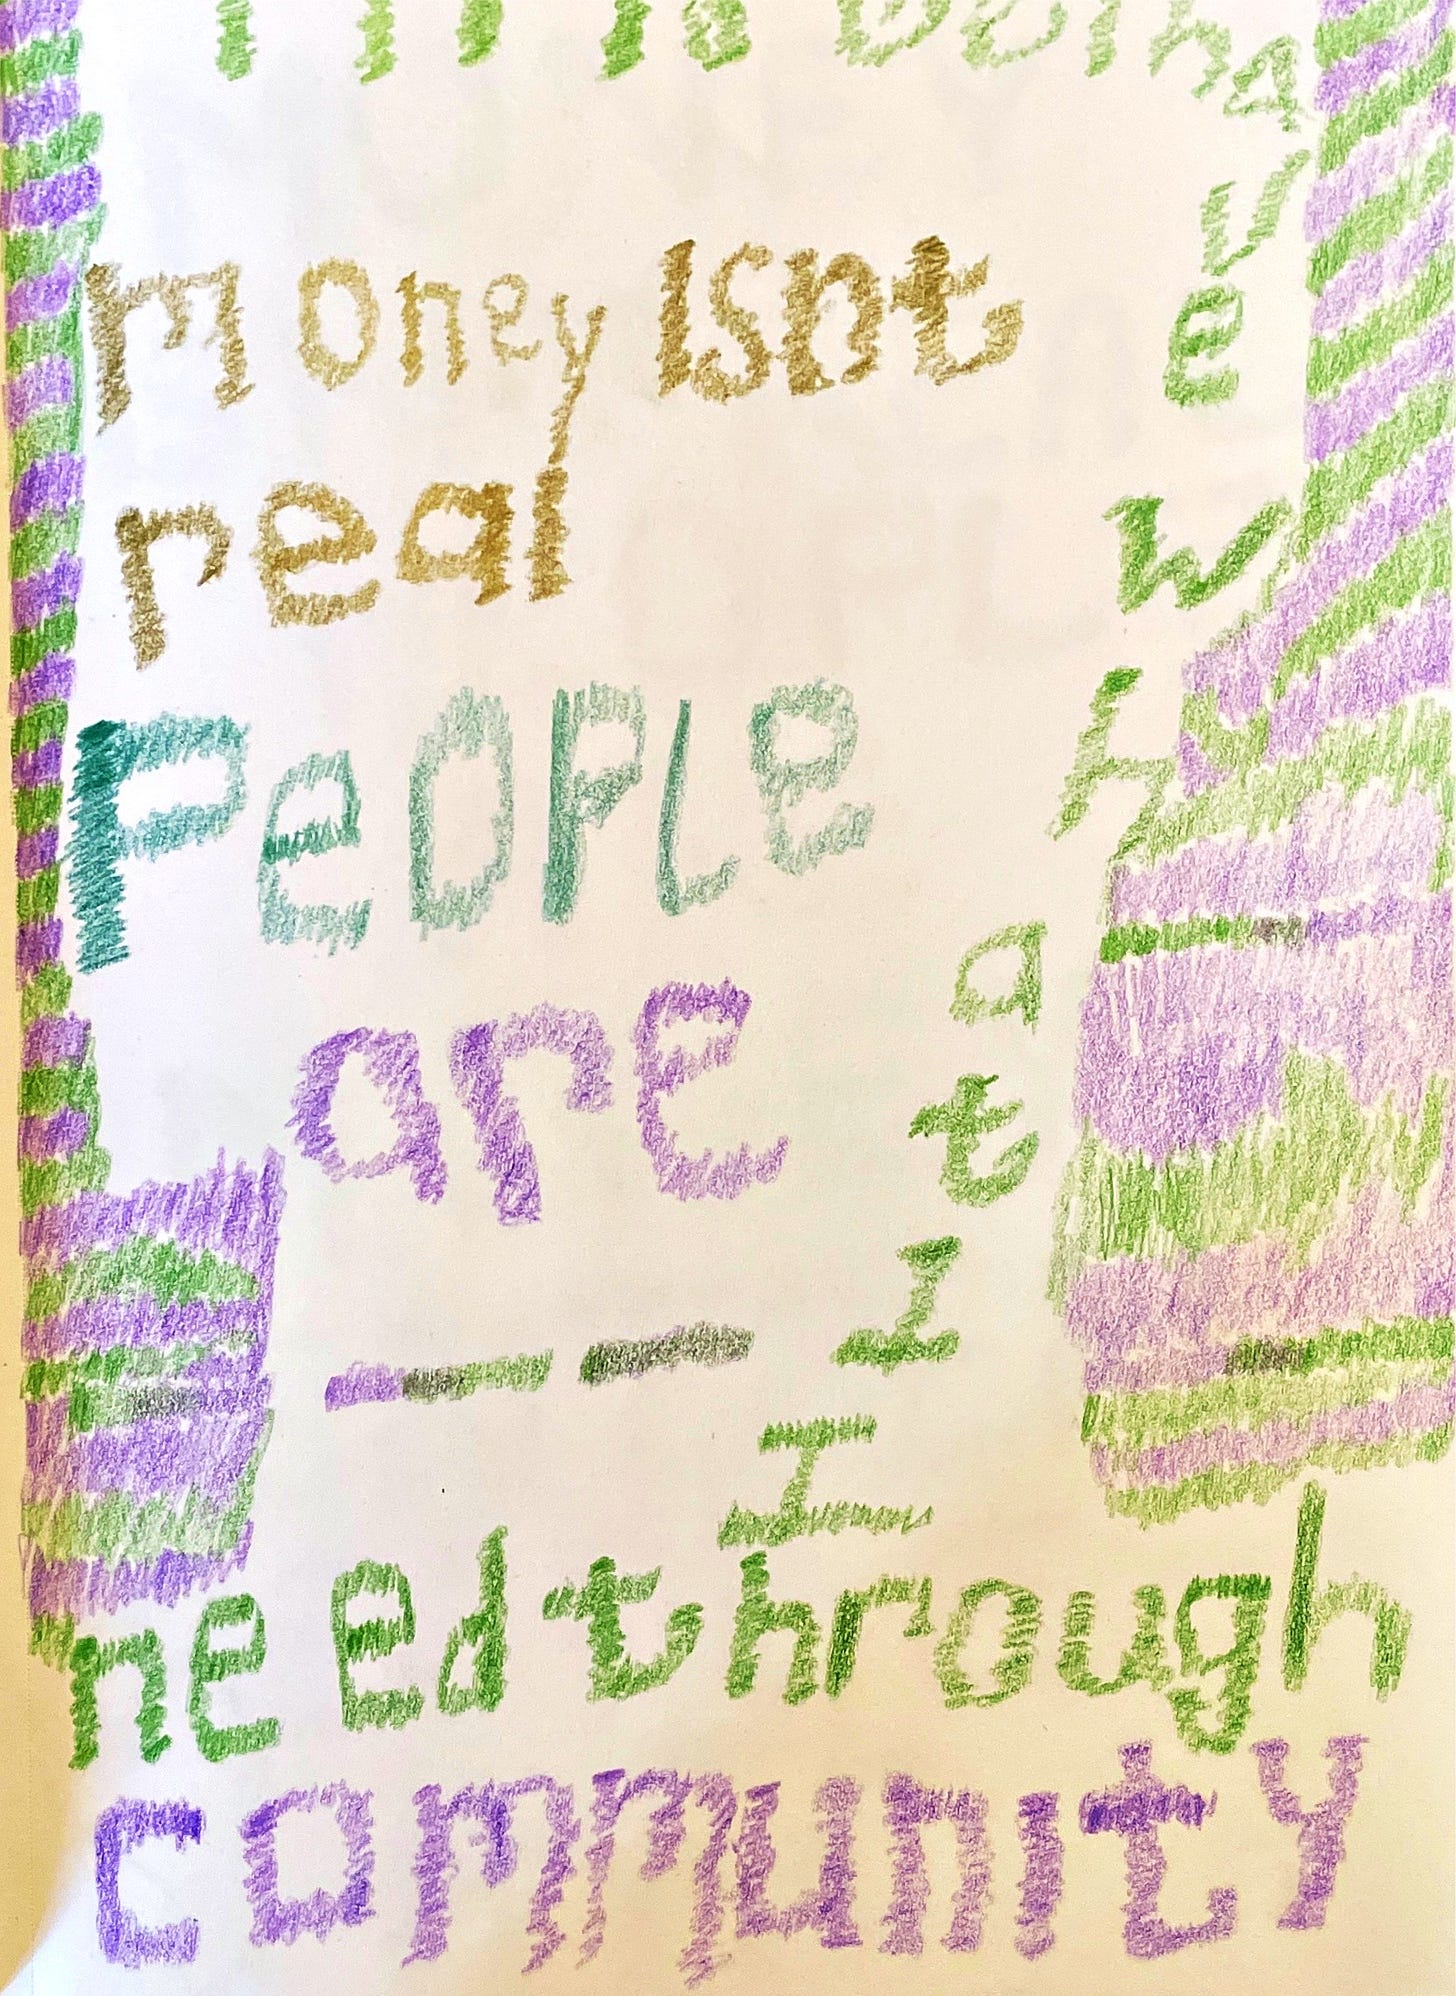 have what I
money Isnt
real
PeOPLe
are
— —
I
need through
community